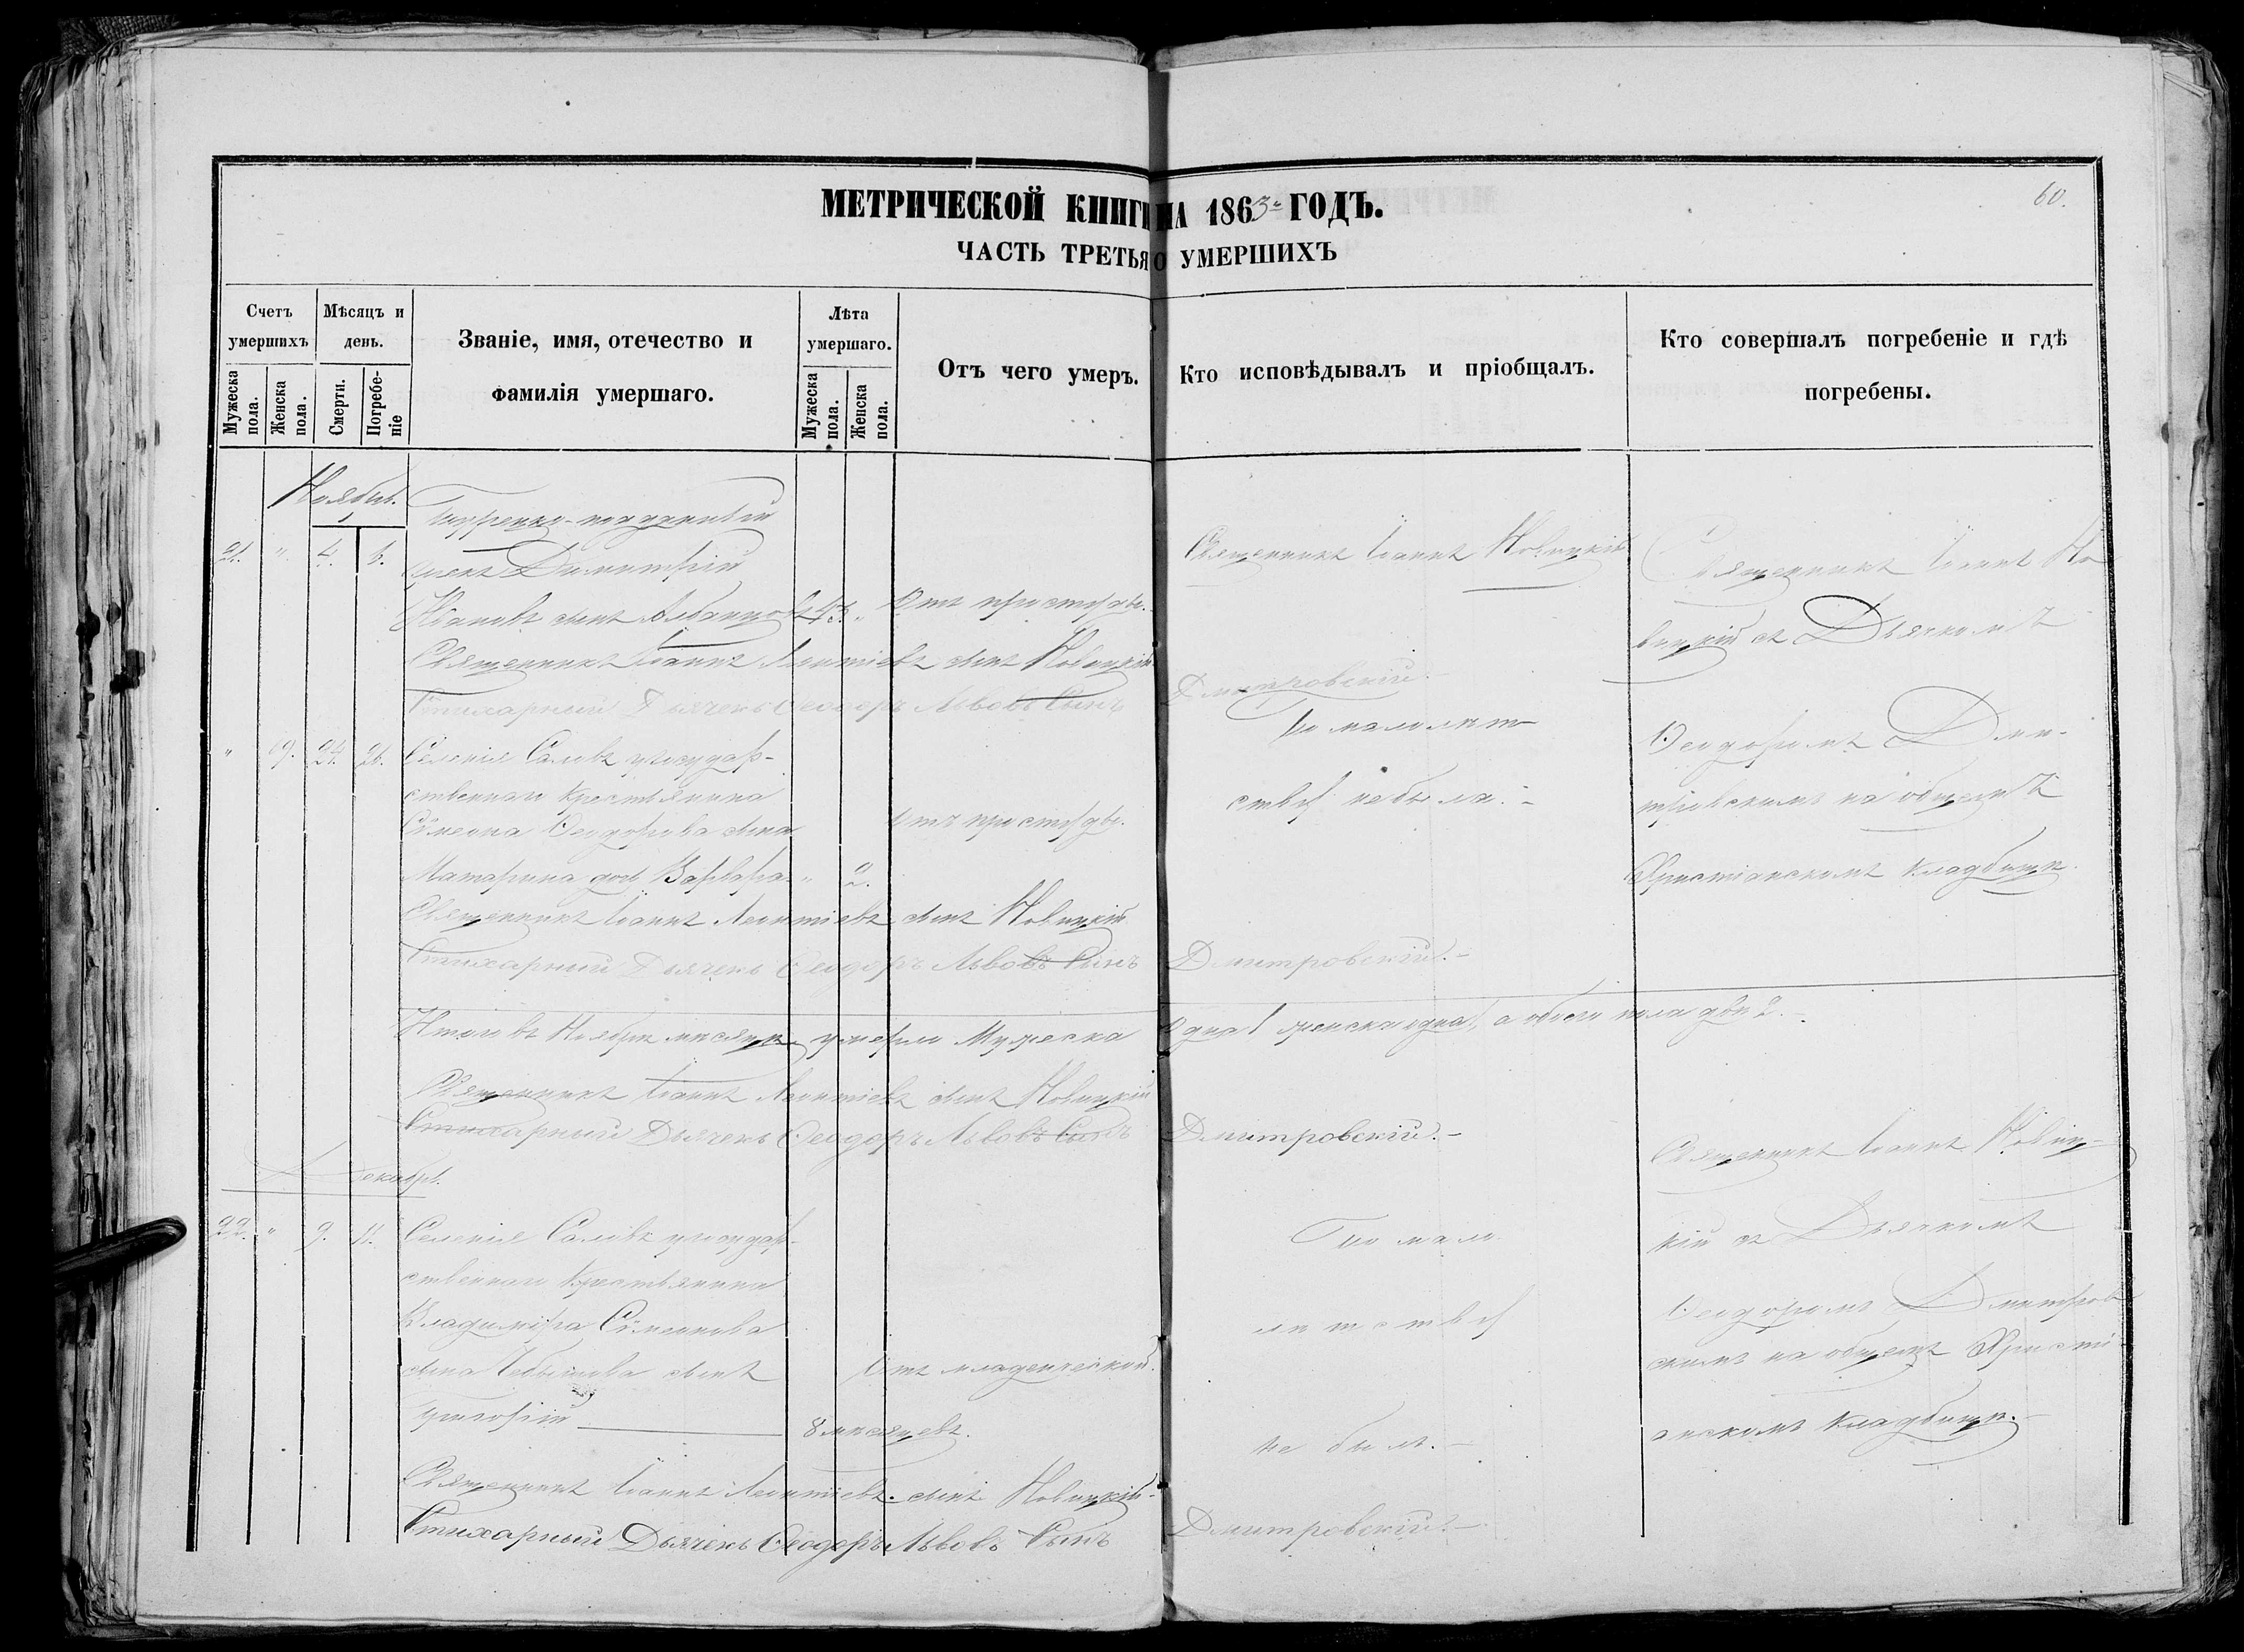 60.
МЕТРИЧЕСКОЙ КНИГИ НА 1863й ГОДЪ.
ЧАСТЬ ТРЕТЬЯ О УМЕРШИХЪ
Счетъ умершихъ
Мужеска пола.
Женска пола.
Мѣсяцъ и день.
Смерти.
Погребеніе
Званіе, имя, отечество и
фамилія умершаго.
Лѣта умершаго.
Мужеска пола.
Женска пола.
Отъ чего умеръ.
Кто исповѣдывалъ и пріобщалъ.
Кто совершалъ погребеніе и гдѣ
погребены.
Ноябрь.
21. " 4. 6.
Димитрій
Ивановъ сынъ 43. " Отъ простуды.
Священникъ Іоаннъ Новицкій
Священникъ Іоаннъ Но
вицкій съ Дьячкомъ
Ѳеодоромъ Дми-
тровскимъ на общемъ
Христіанскомъ кладбищѣ.
Священникъ Іоаннъ Леонтіевъ сынъ Новицкій
Стихарный Дьячекъ Ѳеодоръ Львовъ Сынъ Дмитровскій.-
" 19. 24. 26. Селенія государ-
ственнаго крестьянина
Симеона Ѳеодорова сына
дочь Варвара " 2.
Отъ простуды.
По малолѣт
ству небыла.-
Священникъ Іоаннъ Леонтіевъ сынъ Новицкій
Стихарный Дьячекъ Ѳеодоръ Львовъ Сынъ Дмитровскій.-
Итого въ Ноябрѣ мѣсяцѣ умерло Мужеска одна 1 женска одна 1, а обоего пола двѣ 2.-
Священникъ Іоаннъ Леонтіевъ сынъ Новицкій
Стихарный Дьячекъ Ѳеодоръ Львовъ Сынъ Дмитровскій.-
Декабрь.
22. " 9. 11. Селенія государ-
ственнаго крестьянина
Владиміра Симеонова
сына сынъ
Григорій
8 мѣсяцевъ.
Отъ младенческой.
По мало
лѣтству
не былъ.-
Священникъ Іоаннъ Новиц-
кій съ Дьячкомъ
Ѳеодоромъ Дмитров
скимъ на общемъ Христі
анскомъ кладбищѣ.-
Священникъ Іоаннъ Леонтіевъ сынъ Новицкій-
Стихарный Дьячекъ Ѳеодоръ Львовъ Сынъ Дмитровскій.-